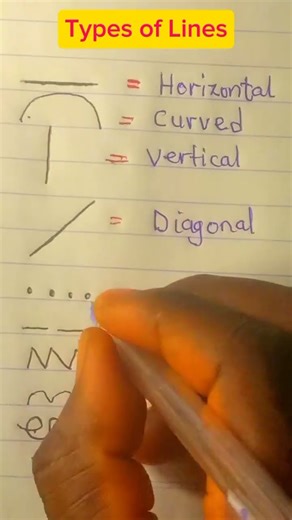 Types of Lines
= Horizontal
= Curved
= Vertical
= Diagonal